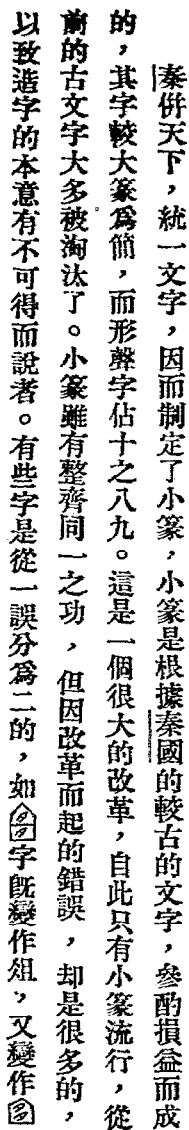 秦併天下，統一文字，因而制定了小篆，小篆是根據秦國的較古的文字，參酌損益而成
的，其字較大篆爲簡，而形聲字佔十之八九。這是一個很大的改革，自此只有小篆流行，從
前的古文字大多被淘汰了。小篆雖有整齊同一之功，但因改革而起的錯誤，却是很多的，
以致造字的本意有不可得而說者。有些字是從一誤分爲二的，如字旣變作俎，又變作